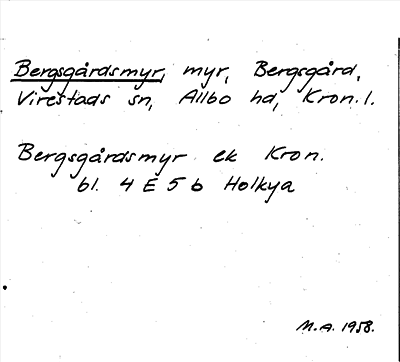 Bergsgårdsmyr, myr, Bergsgård,
Virestads sn, Allbo hd, Kron. l.
Bergsgårdsmyr ek Kron.
bl. 4 E 5 b Holkya
M.A. 1958.